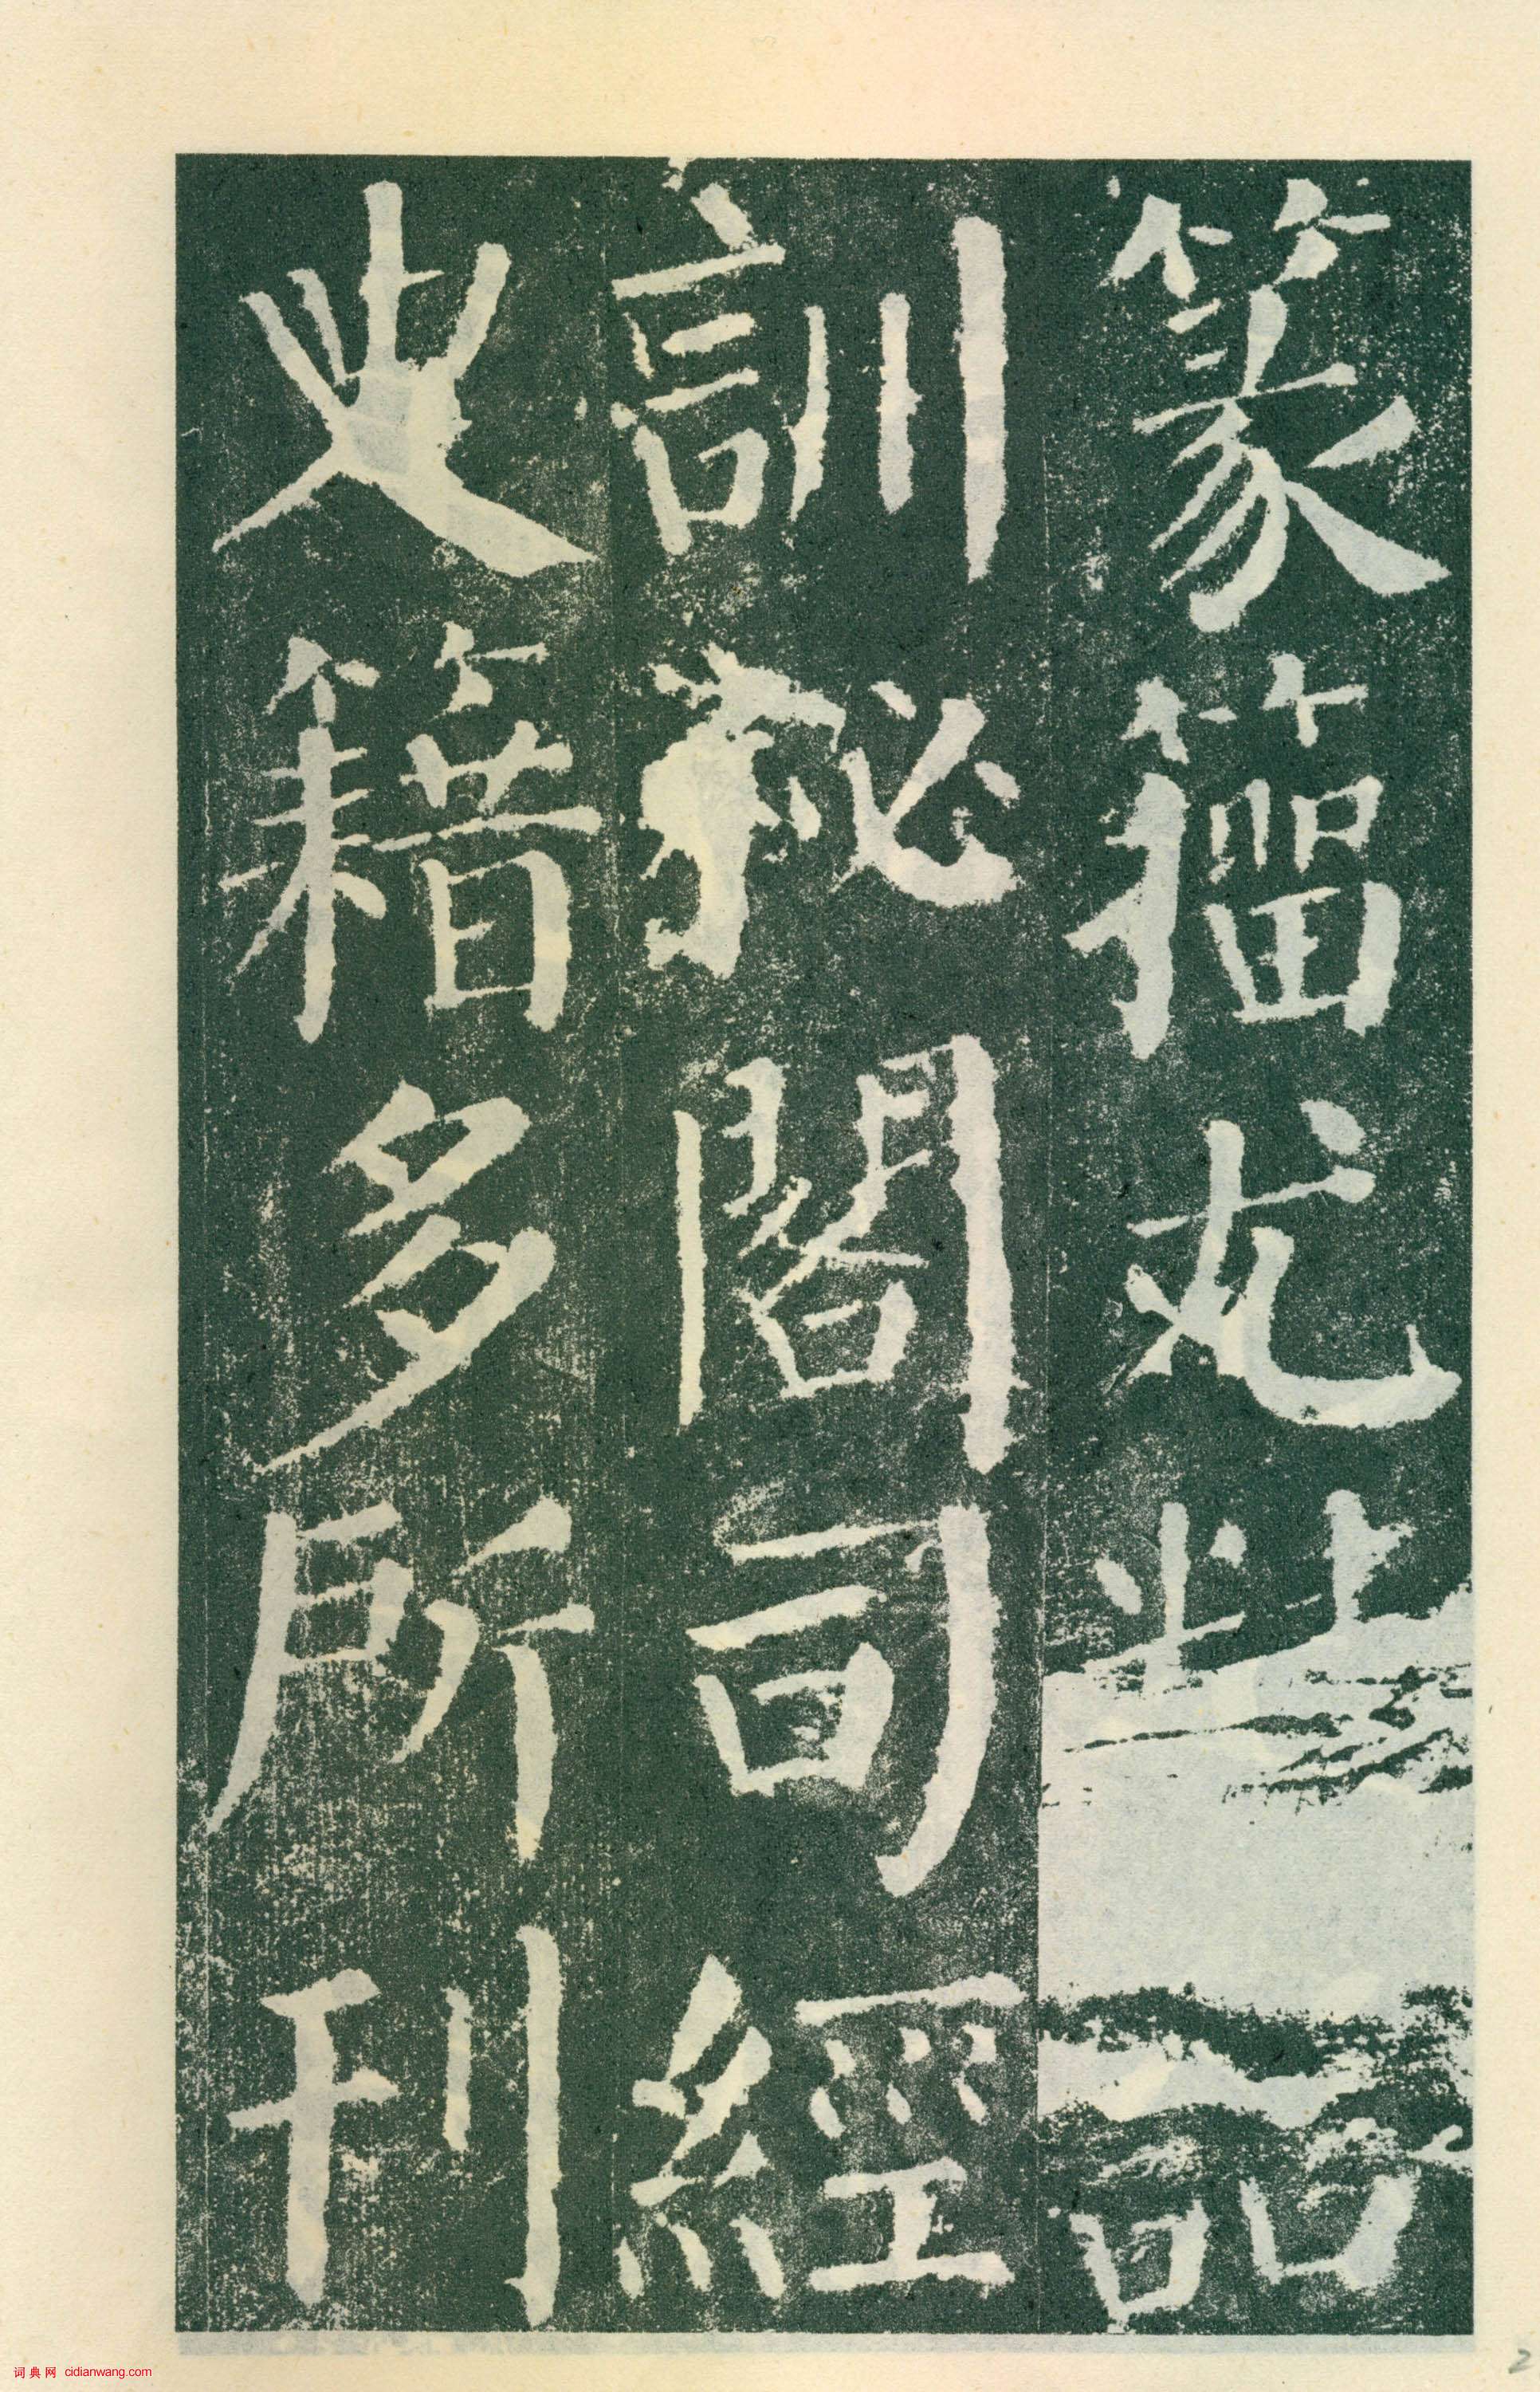 篆籀尤詁
訓祕閣司經
史籍多所刊
词典网 cidianwang.com
2